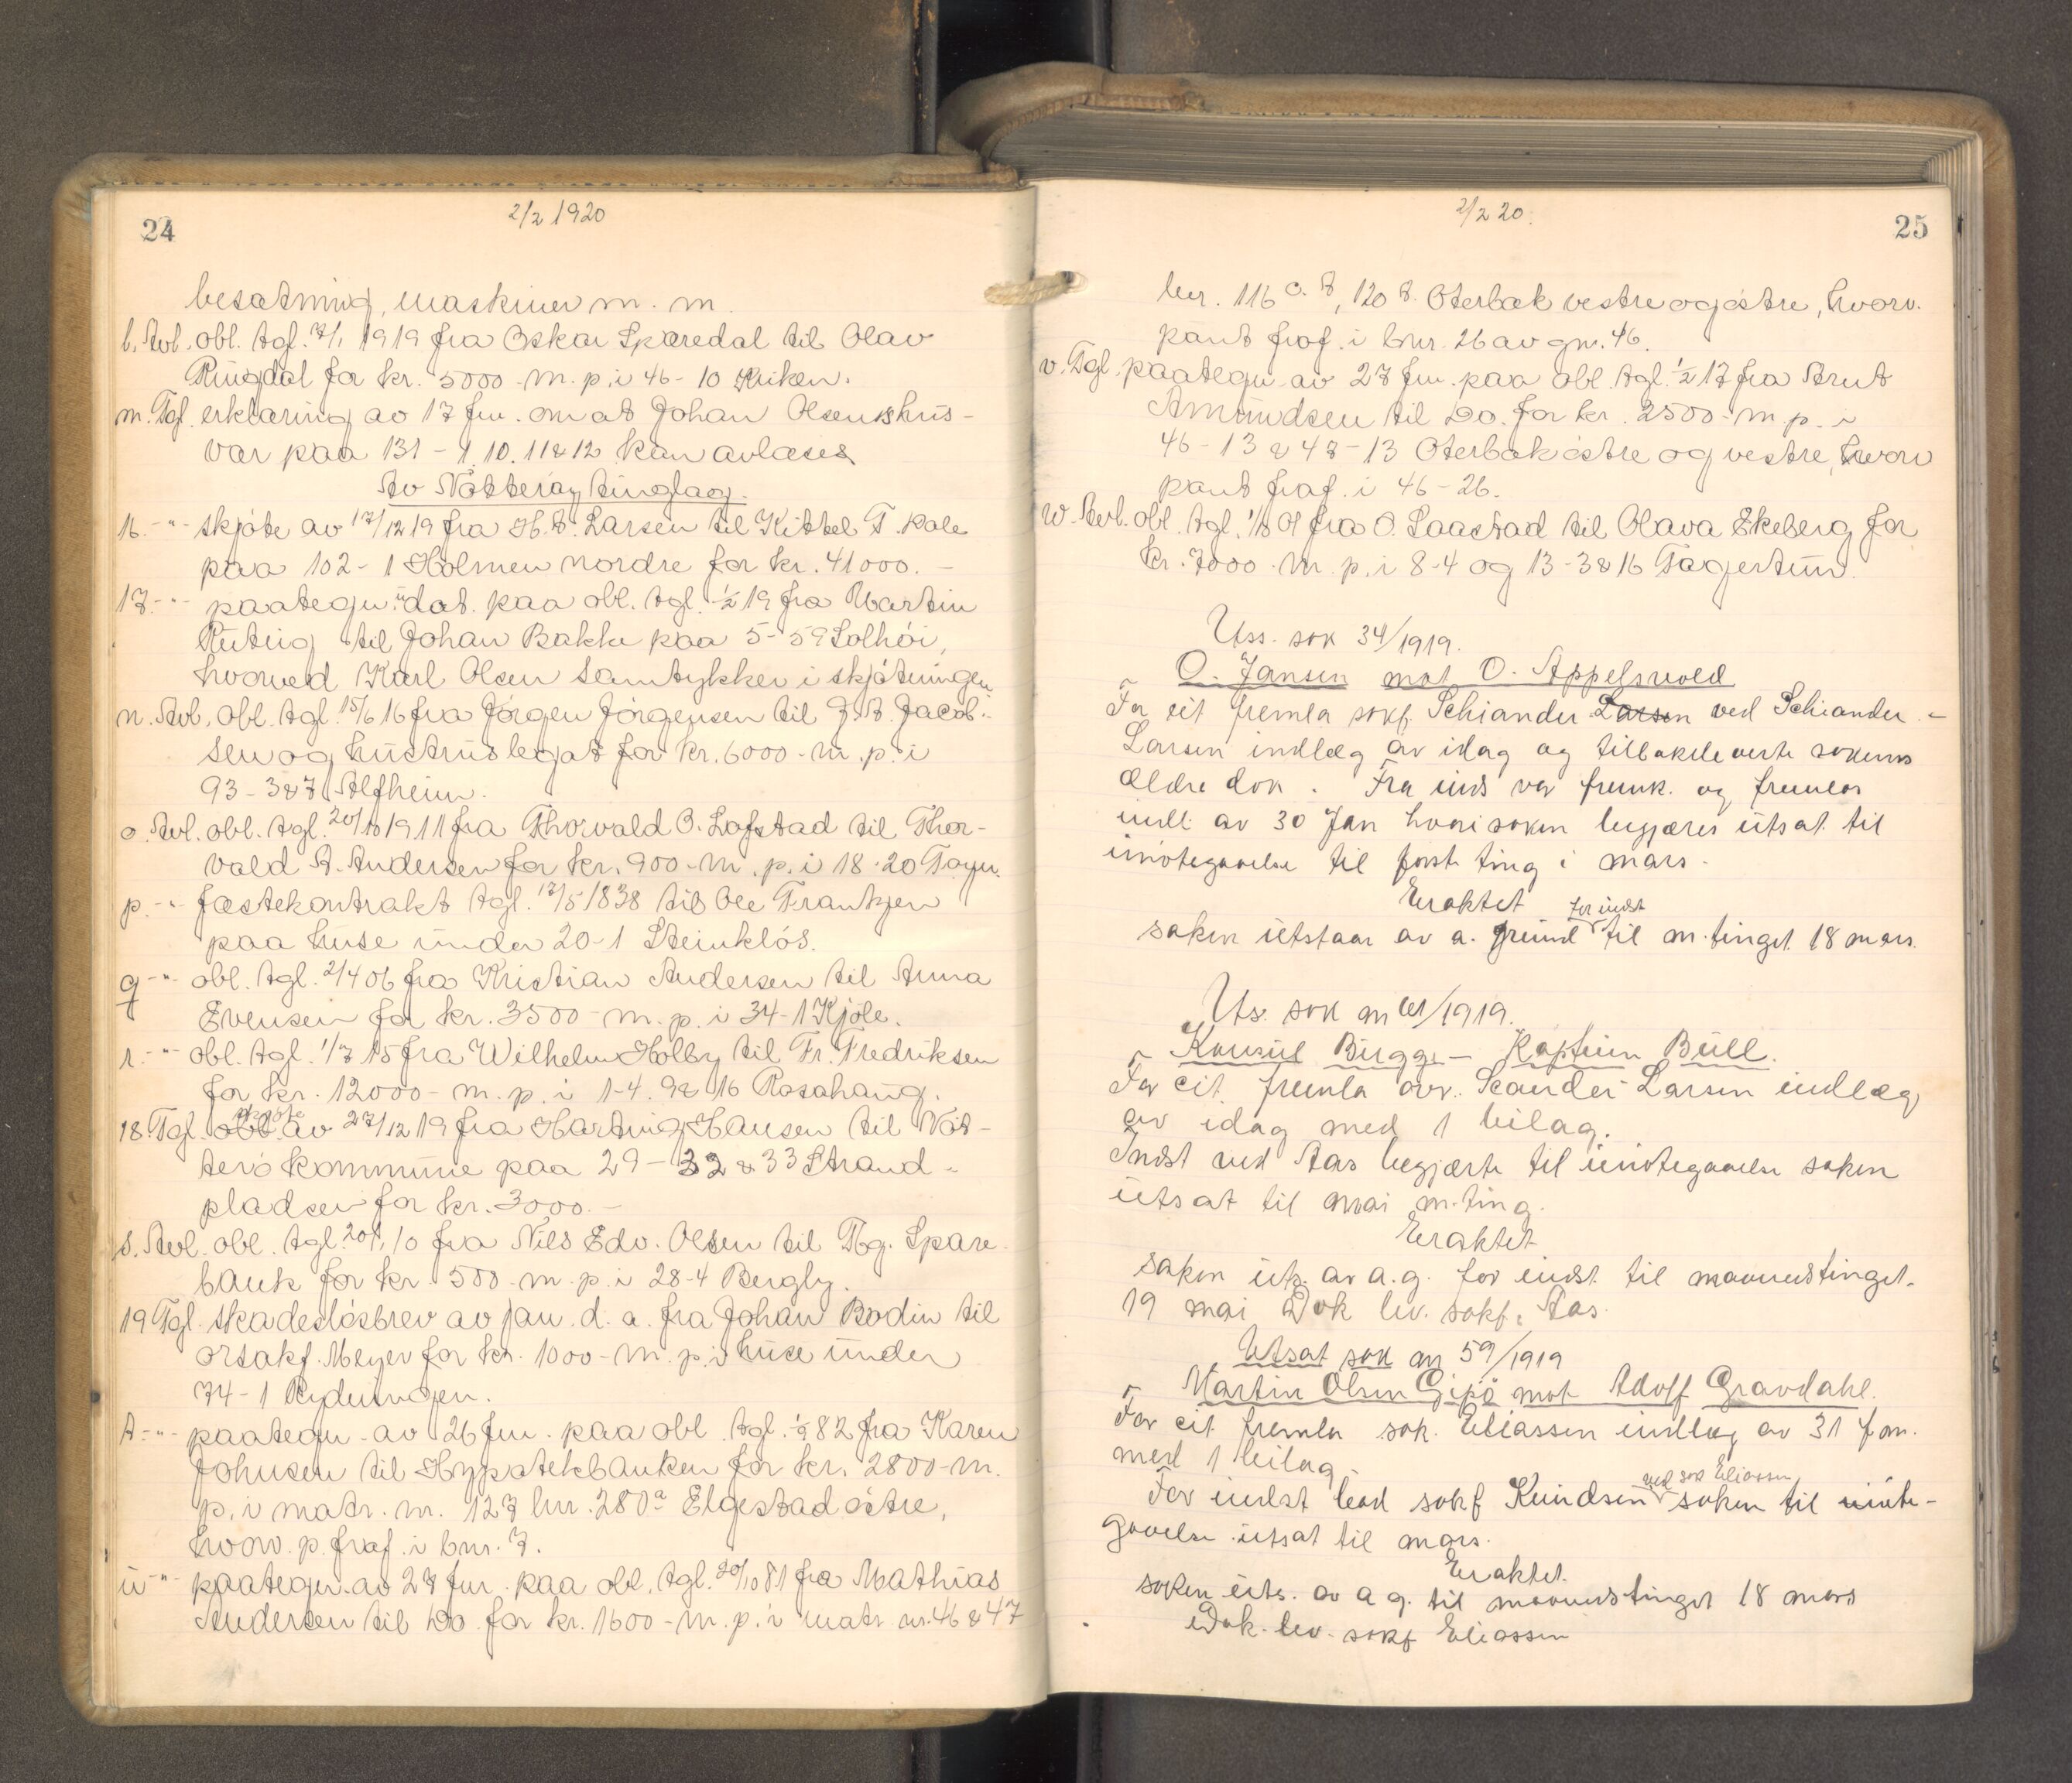 24
2/2 1920
besætning, maskiner m. m.
l. Avl. obl. tgl. 7/1 1919 fra Oskar Spæredal til Olav
Ringdal for kr. 5000 - m. p. i 46 - 10 Kriken.
m. Tgl. erklæring av 17 fm. om at Johan Olsens hus-
vær paa 131 - 1. 10. 11 & 12 kan avlæses
Av Nøtterøy tinglag.
16. -"- skjøte av 17/12 19 fra H. A. Larsen til Kittel T. Dale
paa 102 - 1 Holmen nordre for kr. 41000. -
17. -"- paategn. udat. paa obl. tgl. 1/2 19 fra Martin
til Johan Bakke paa 5 - 59 Solhöi,
hvorved Karl Olsen samtykker i skjøtningen.
n. Avl. obl. tgl. 15/6 16 fra Jörgen Jörgensen til J. A. Jacob-
sen og hustrus legat for kr. 6000 - m. p. i
93 - 3 & 7 Alfheim.
o. Avl. obl. tgl. 20/10 1911 fra Thorvald O. Lofstad til Thor-
vald A. Andersen for kr. 900 - m. p. i 18 - 20
p. -"- fæstekontrakt tgl. 17/5 1838 til Ole Frantzen
paa huse under 20 - 1 Steinklös.
q -"- obl. tgl. 2/4 06 fra Kristian Andersen til Anna
Evensen for kr. 3500 - m. p. i 34 - 1 Kjöle.
r. -"- obl. tgl. 1/7 15 fra Wilhelm Holby til Fr. Fredriksen
for kr. 12000 - m. p. i 1 - 4. 9 & 16 Rosahaug.
skjøte
18. Tgl. obl. av 27/12 19 fra Hartvig Hansen til Nøt-
terö kommune paa 29 - 32 & 33 Strand-
pladsen for kr. 3000. -
s. Avl. obl. tgl. 20/1 10 fra Nils Edv. Olsen til Tbg. Spare-
bank for kr. 500 - m. p. i 28 - 4 Bergly.
19 Tgl. skadeslösbrev av jan. d. a. fra Johan Bodin til
orsakf. Meyer for kr. 1000 - m. p. i huse under
74 - 1
t -"- paategn. av 26 fm. paa obl. tgl. 82 fra Karen
Johnsen til Hypotekbanken for kr. 2800 - m.
p. i matr. nr. 127 lnr. 280a Elgestad östre,
hvorv. p. fraf. i bnr. 7.
u -"- paategn. av 27 fm. paa obl. tgl. 20/10 81 fra Mathias
Andersen til Do. for kr. 1600 - m. p. i matr. nr. 46 & 47
2/2 20.
25
lnr. 116 c. &, 120 &. Oterbæk vestre og östre, hvorv.
pant fraf. i bnr. 26 av gnr. 46.
v. Tgl. paategn. av 27 fm. paa obl. tgl. 1/2 17 fra Arnt
Amundsen til Do. for kr. 2500 - m. p. i
46 - 13 & 47 - 13 Oterbæk östre og vestre, hvorv.
pant fraf. i 46 - 26.
w. Avl. obl. tgl. 1/8 01 fra O. Laastad til Olava Ekeberg for
kr. 7000 - m. p. i 8 - 4 og 13 - 3 & 16 Fagertun.
Uts. sak 34/1919.
O. Jansen mot O. Appelsvold
For cit fremla sakf. Schiander Larsen ved Schiander-
Larsen indlæg av idag og tilbakeleverte sakens
ældre dok. Fra inds var fremk. og fremlas
indl. av 30 Jan hvori saken begjæres utsat til
imotegaaelse til först ting i mars.
Eraktet
for indst
saken utstaar av a. grund til m-tinget 18 mars.
Uts. sak nr 41/1919.
Konsul Bugge - Kaptein Bull.
For cit. fremla ovr. Scander-Larsen indlæg
av idag med 1 bilag.
Indst ved Aas begjærte til imotegaaelse saken
utsat til mai m-ting.
Eraktet
saken uts. av a. g. for indst. til maanedstinget
19 mai Dok lev. sakf. Aas.
Utsat sak nr 59/1919
Martin Olsen Gipö mot Adolf Gravdahl.
For cit fremla sak. Eliassen indlæg av 31 f. m.
med 1 bilag.
ved sak Eliassen
For indst bad sakf Knudsen saken til imöte-
gaaelse utsat til mars.
Eraktet.
saken uts. av a g. til maanedstinget 18 mars
Dok. lev. sakf Eliassen